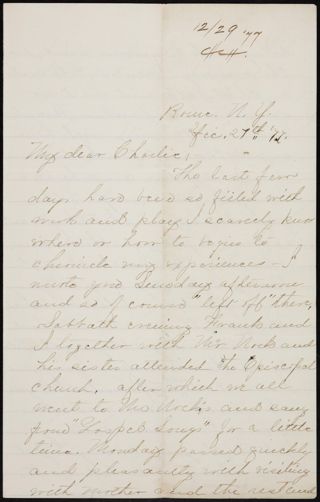 12/29 '77
Rome. N.Y.
Dec. 27th '77.
My dear Charlie,
The last few
days have been so filled with
work and play I scarcely know
where or how to begin to
chronicle my experiences - I
wrote you Sunday afternoon
and so of course "left off" there,
Sabbath evening Frank and
I together with Mr Rock and
his sister attended the Episcopal
church, after which we all
went to Mr Rock's and sang
from "Gospel Songs" for a little
time. Monday passed quickly
and pleasantly with visiting
with mother and the rest and